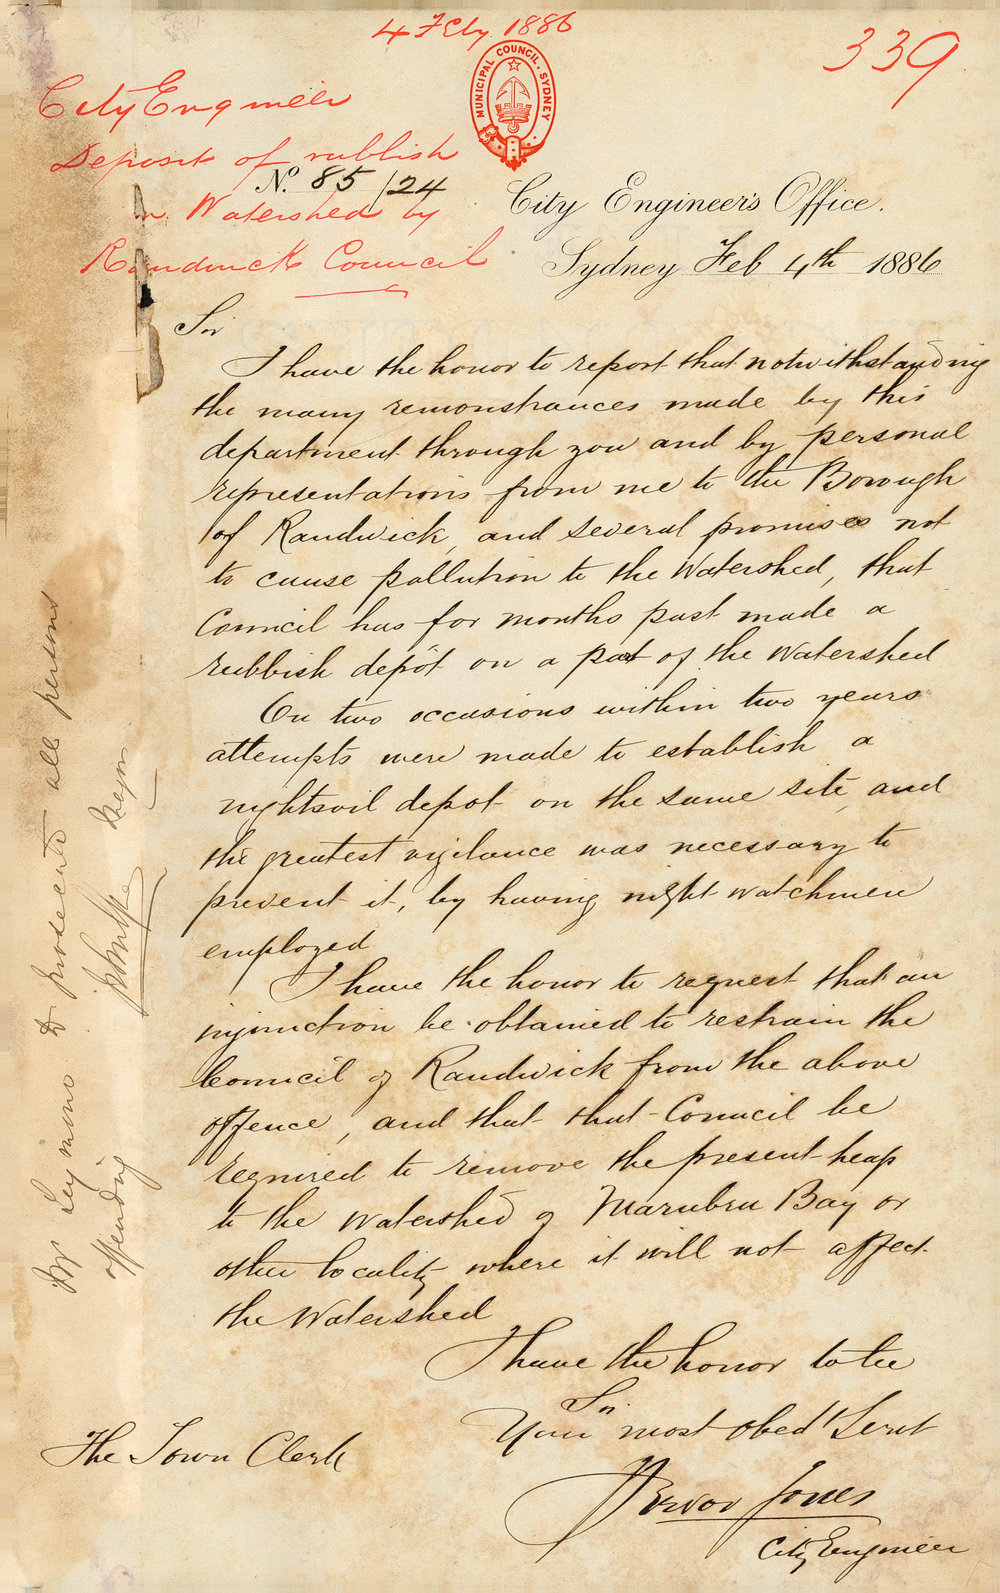 4 Feby 1886
339
MUNICIPAL COUNCIL. SYDNEY
City Engineer
Deposit of rubbish
on Watershed by
Randwick Council
No. 85/24
City Engineer's Office.
Sydney Feb 4th 1886
Sir
I have the honor to report that notwithstanding
the many remonstrances made by this
department through you and by personal
representations from me to the Borough
of Randwick, and several promises not
to cause pollution to the Watershed, that
Council has for months past made a
rubbish depôt on a part of the Watershed
On two occasions within two years
attempts were made to establish a
nightsoil depot on the same site, and
the greatest vigilance was necessary to
prevent it, by having night watchmen
employed
I have the honor to request that an
injunction be obtained to restrain the
Council of Randwick from the above
offence, and that that Council be
required to remove the present heap
to the Watershed of Marubra Bay or
other locality where it will not affect
the Watershed
I have the honor to be
Sir
Your most obedt Servt
Trevor Jones
City Engineer
The Town Clerk
Mr Seymour to prosecute all persons
offending
Mayor